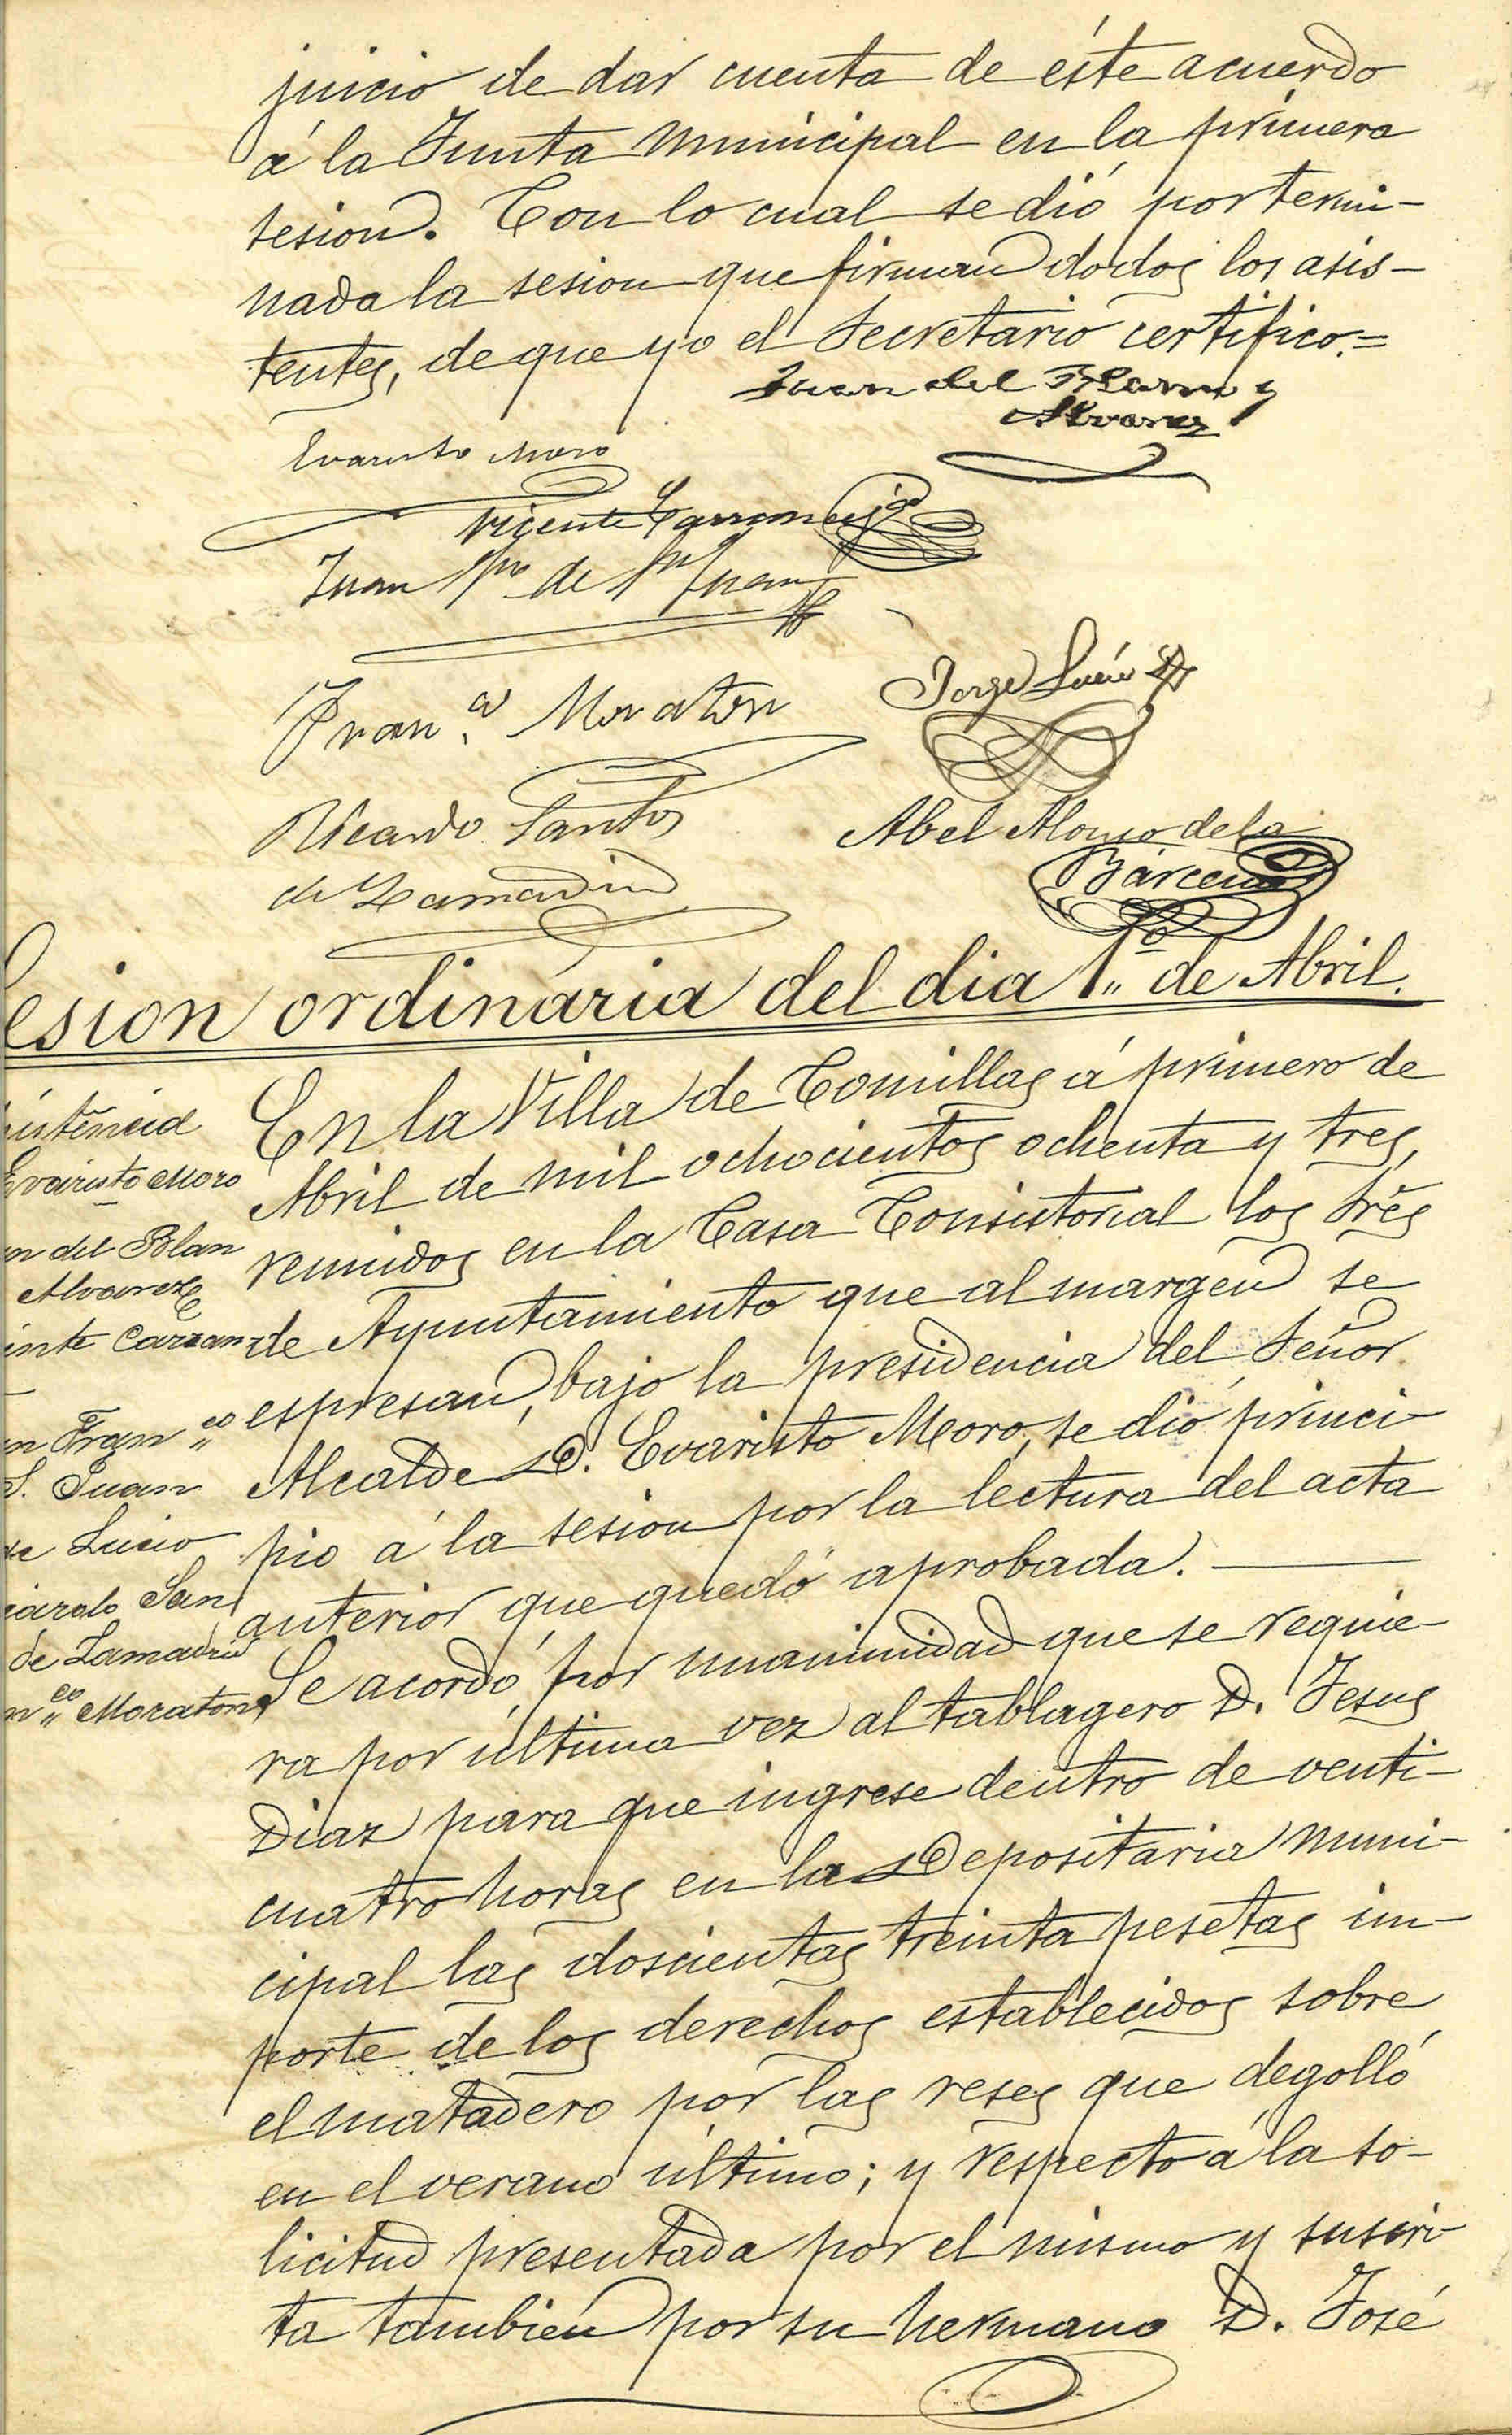 juicio de dar cuenta de éste acuerdo
á la Junta Municipal en la primera
sesion. Con lo cual se dió por termi-
nada la sesion que firman dodos los asis-
tentes, de que yo el Secretario certifico.=
Juan del Blanco y
Alvarez
Evaristo Moro
Vicente Carrancejo
Juan Fco de Sn Juan
Franco Moraton
Jorge Lucio
Ricardo Santos
de Lamadrid
Abel Alonso de la
Bárcena
esion ordinaria del dia 1º de Abril.
istencia
Evaristo Moro
n del Blan
Alvarez
inte Carran
n Franco
S. Juan
Lucio
cardo San
de Lamadrid
nco Moraton
En la Villa de Comillas á primero de
Abril de mil ochocientos ochenta y tres,
reunidos en la Casa Consistorial los Sres
de Ayuntamiento que al margen se
espresan, bajo la presidencia del Señor
Alcalde D. Evaristo Moro, se dió princi-
pio á la sesion por la lectura del acta
anterior que quedó aprobada.
Se acordó por unanimidad que se requie-
ra por última vez al tablagero D. Jesus
Diaz para que ingrese dentro de venti-
cuatro horas en la Depositaria Muni-
cipal las doscientas treinta pesetas im-
porte de los derechos establecidos sobre
el matadero por las reses que degolló
en el verano último; y respecto á la so-
licitud presentada por el mismo y suscri-
ta también por su hermano D. José